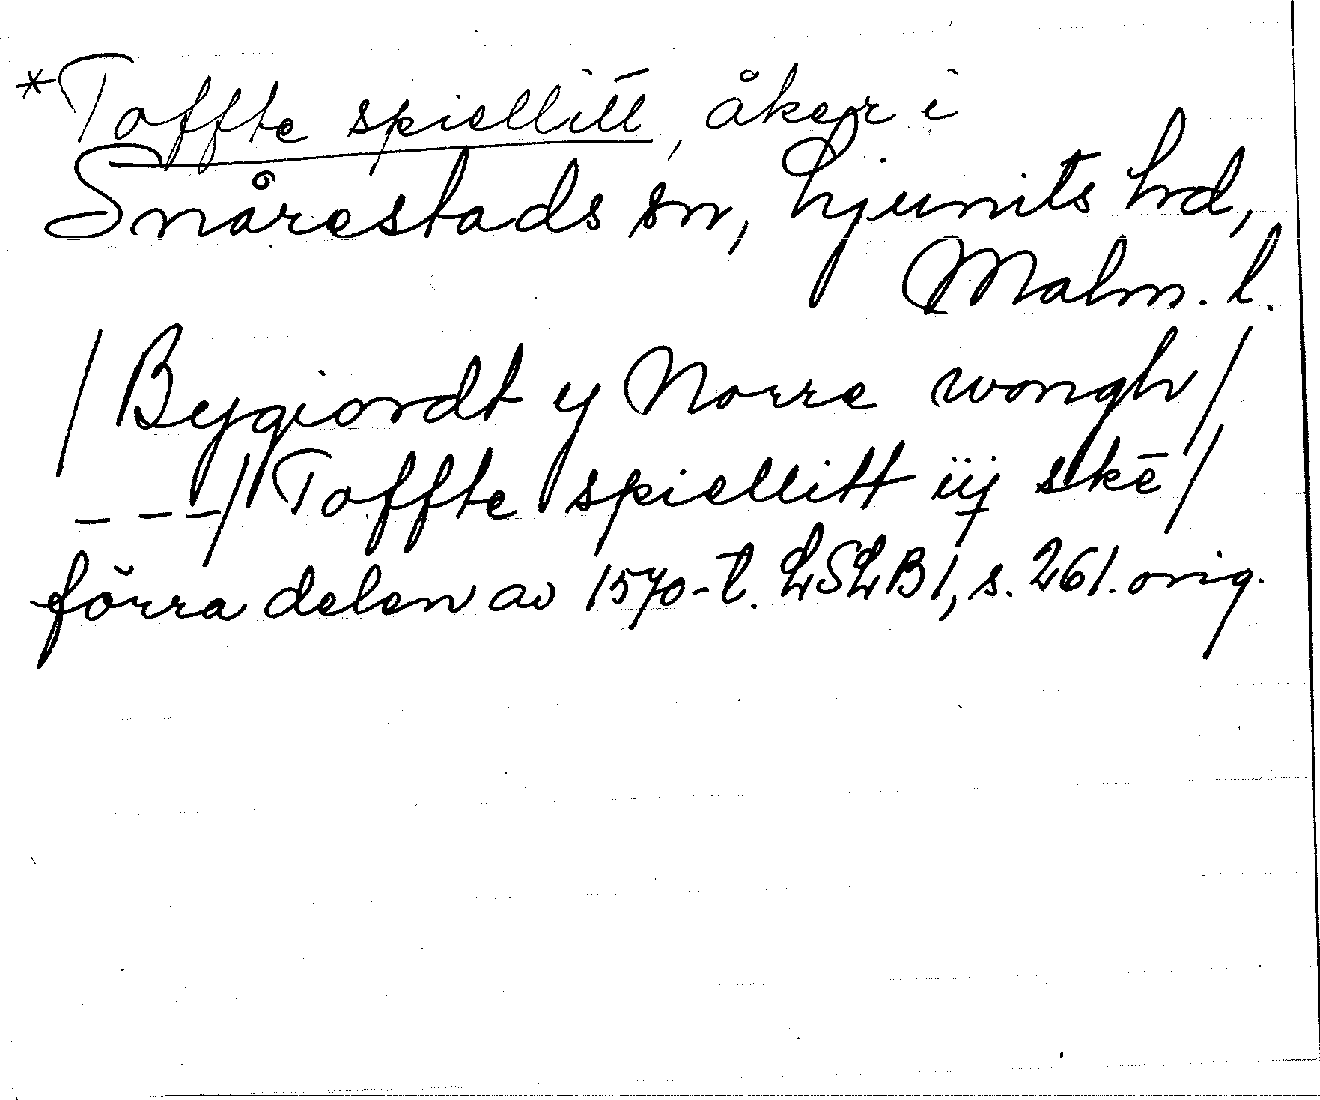 *Toffte spiellitt, åker i
Snårestads sn, Ljunits hd,
Malm. l.
/Bygiordt y Norre wongh/
---/Toffte spiellitt iij skē/
förra delen av 1570-t. LSLB1, s. 261. orig.